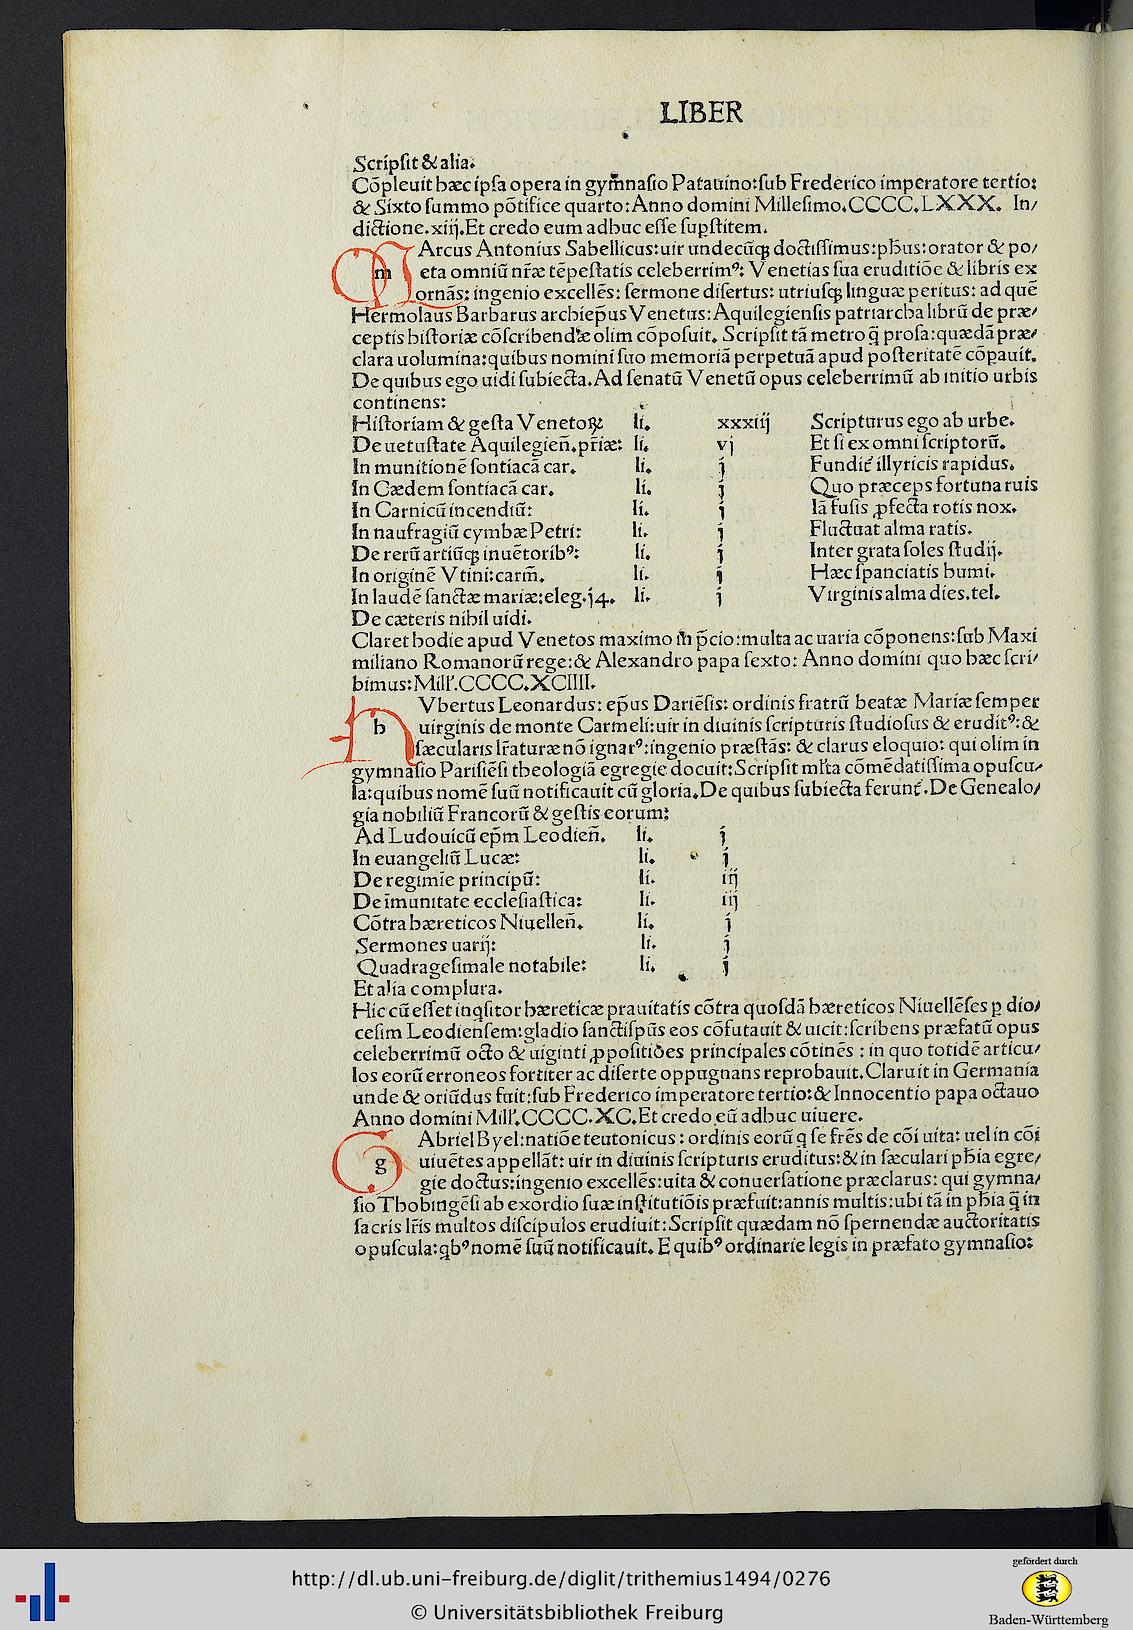 LIBER
Scripſit & alia.
Cõpleuit hæc ipſa opera in gymnaſio Patauino:ſub Frederico imperatore tertio:
& Sixto ſummo põtifice quarto:Anno domini Milleſimo.CCCC.LXXX. In/
dictione.xiij.Et credo eum adhuc eſſe ſupſtitem.
m Arcus Antonius Sabellicus:uir undecũqꝫ doctiſſimus:pħus:orator & po/
eta omniũ nr̃æ tẽpeſtatis celeberrimꝰ: Venetias ſua eruditiõe & libris ex
ornãs: ingenio excellẽs: ſermone diſertus: utriuſqꝫ linguæ peritus: ad quẽ
Hermolaus Barbarus archiep̃us Venetus:Aquilegienſis patriarcha librũ de præ/
ceptis hiſtoriæ cõſcribendæ olim cõpoſuit. Scripſit tã metro q̃ proſa:quædã præ/
clara uolumina:quibus nomini ſuo memoriã perpetuã apud poſteritatẽ cõpauit.
De quibus ego uidi ſubiecta.Ad ſenatũ Venetũ opus celeberrimũ ab initio urbis
continens:
Hiſtoriam & geſta Venetoꝝ: li. xxxiij Scripturus ego ab urbe.
De uetuſtate Aquilegieñ.pr̃iæ: li. vj Et ſi ex omni ſcriptorũ.
In munitionẽ ſontiacã car. li. j Fundit᷑ illyricis rapidus.
In Cædem ſontiacã car. li. j Quo præceps fortuna ruis
In Carnicũ incendiũ: li. j Iã fuſis ꝓfecta rotis nox.
In naufragiũ cymbæ Petri: li. j Fluctuat alma ratis.
De rerũ artiũqꝫ inuẽtoribꝰ: li. j Inter grata ſoles ſtudij.
In originẽ Vtini:carm̃. li. j Hæc ſpanciatis humi.
In laudẽ ſanctæ mariæ:eleg.j4. li. j Virginis alma dies.tel.
De cæteris nihil uidi.
Claret hodie apud Venetos maximo in p̃cio:multa ac uaria cõponens:ſub Maxi
miliano Romanorũ rege:& Alexandro papa ſexto: Anno domini quo hæc ſcri/
bimus:Mill'.CCCC.XCIIII.
h Vbertus Leonardus: ep̃us Dariẽſis: ordinis fratrũ beatæ Mariæ ſemper
uirginis de monte Carmeli:uir in diuinis ſcripturis ſtudioſus & eruditꝰ:&
ſæcularis lr̃aturæ nõ ignarꝰ:ingenio præſtãs: & clarus eloquio: qui olim in
gymnaſio Pariſiẽſi theologiã egregie docuit:Scripſit ml'ta cõmẽdatiſſima opuſcu/
la:quibus nomẽ ſuũ notificauit cũ gloria.De quibus ſubiecta ferunt᷑.De Genealo/
gia nobiliũ Francorũ & geſtis eorum:
Ad Ludouicũ ep̃m Leodieñ. li. j
In euangeliũ Lucæ: li. j
De regimĩe principũ: li. iij
De ĩmunitate eccleſiaſtica: li. iij
Cõtra hæreticos Niuelleñ. li. j
Sermones uarij: li. j
Quadrageſimale notabile: li. j
Et alia complura.
Hic cũ eſſet inqſitor hæreticæ prauitatis cõtra quoſdã hæreticos Niuellẽſes ꝑ dio/
ceſim Leodienſem:gladio ſanctiſpũs eos cõfutauit & uicit:ſcribens præfatũ opus
celeberrimũ octo & uiginti ꝓpoſitiões principales cõtinẽs : in quo totidẽ articu/
los eorũ erroneos fortiter ac diſerte oppugnans reprobauit.Claruit in Germania
unde & oriũdus fuit:ſub Frederico imperatore tertio:& Innocentio papa octauo
Anno domini Mill'.CCCC.XC.Et credo eũ adhuc uiuere.
g Abriel Byel:natiõe teutonicus : ordinis eorũ q ſe fr̃es de cõi uita: uel in cõi
uiuẽtes appellãt: uir in diuinis ſcripturis eruditus:& in ſæculari pħia egre/
gie doctus:ingenio excellẽs:uita & conuerſatione præclarus: qui gymna/
ſio Thobingẽſi ab exordio ſuæ inſtitutiõis præfuit:annis multis:ubi tã in pħia q̃ in
ſacris lr̃is multos diſcipulos erudiuit:Scripſit quædam nõ ſpernendæ auctoritatis
opuſcula:qbꝰ nomẽ ſuũ notificauit. E quibꝰ ordinarie legis in præfato gymnaſio:
http://dl.ub.uni-freiburg.de/diglit/trithemius1494/0276
© Universitätsbibliothek Freiburg
gefördert durch
Baden-Württemberg